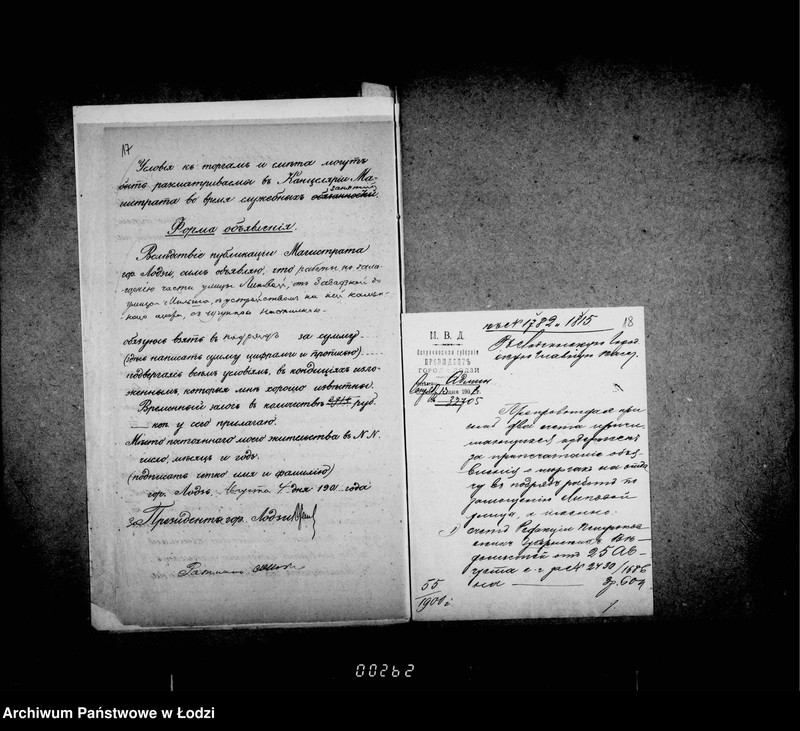 17
Условія къ торгамъ и смѣта могутъ
быть разматриваемы въ Канцеляріи Ма-
занятій
гистрата во время служебныхъ обязанностей.
Форма объявленія.
Вслѣдствіе публикаціи Магистрата
гор. Лодзи, симъ объявляю, что работы по
части улицы Липовой, отъ Завадской до
улицы Мильша, съ устройствомъ на ней
обязуюсь взять въ подрядъ за сумму
(здѣсь написать сумму цифрами и прописью)
подвергаясь всѣмъ условіямъ, въ кондиціяхъ изло-
женнымъ, которыя мнѣ хорошо извѣстны.
Временный залогъ въ количествѣ руб.
коп. у сего прилагаю.
Мѣсто постояннаго моего жительства въ N.N.
число, мѣсяцъ и годъ.
(подписать четко имя и фамилію)
гор. Лодзь, Августа 4 дня 1901 года
За Президента гор. Лодзи
Ратманъ
къ № 1782 и 1815
18
М. В. Д.
Петроковская губернія
ПРЕЗИДЕНТЪ
ГОРОДА ЛОДЗИ
Админ
13 дня 1901 г.
№ 32705
Въ Лодзинскую Город
скую Главную Кассу.
Препровождая при
семъ два счета причи
тающихся
за припечатаніе объя
вленія о торгахъ на отда
чу въ подрядъ работъ по
замощенію Липовой
улицы, а именно:
1) счетъ Редакціи Петроков
скихъ Губернскихъ Вѣ
домостей отъ 25 Ав-
густа с. г. за № 2430/1686
на р. 60 к
55
1901 г.
1.
00262
Archiwum Państwowe w Łodzi